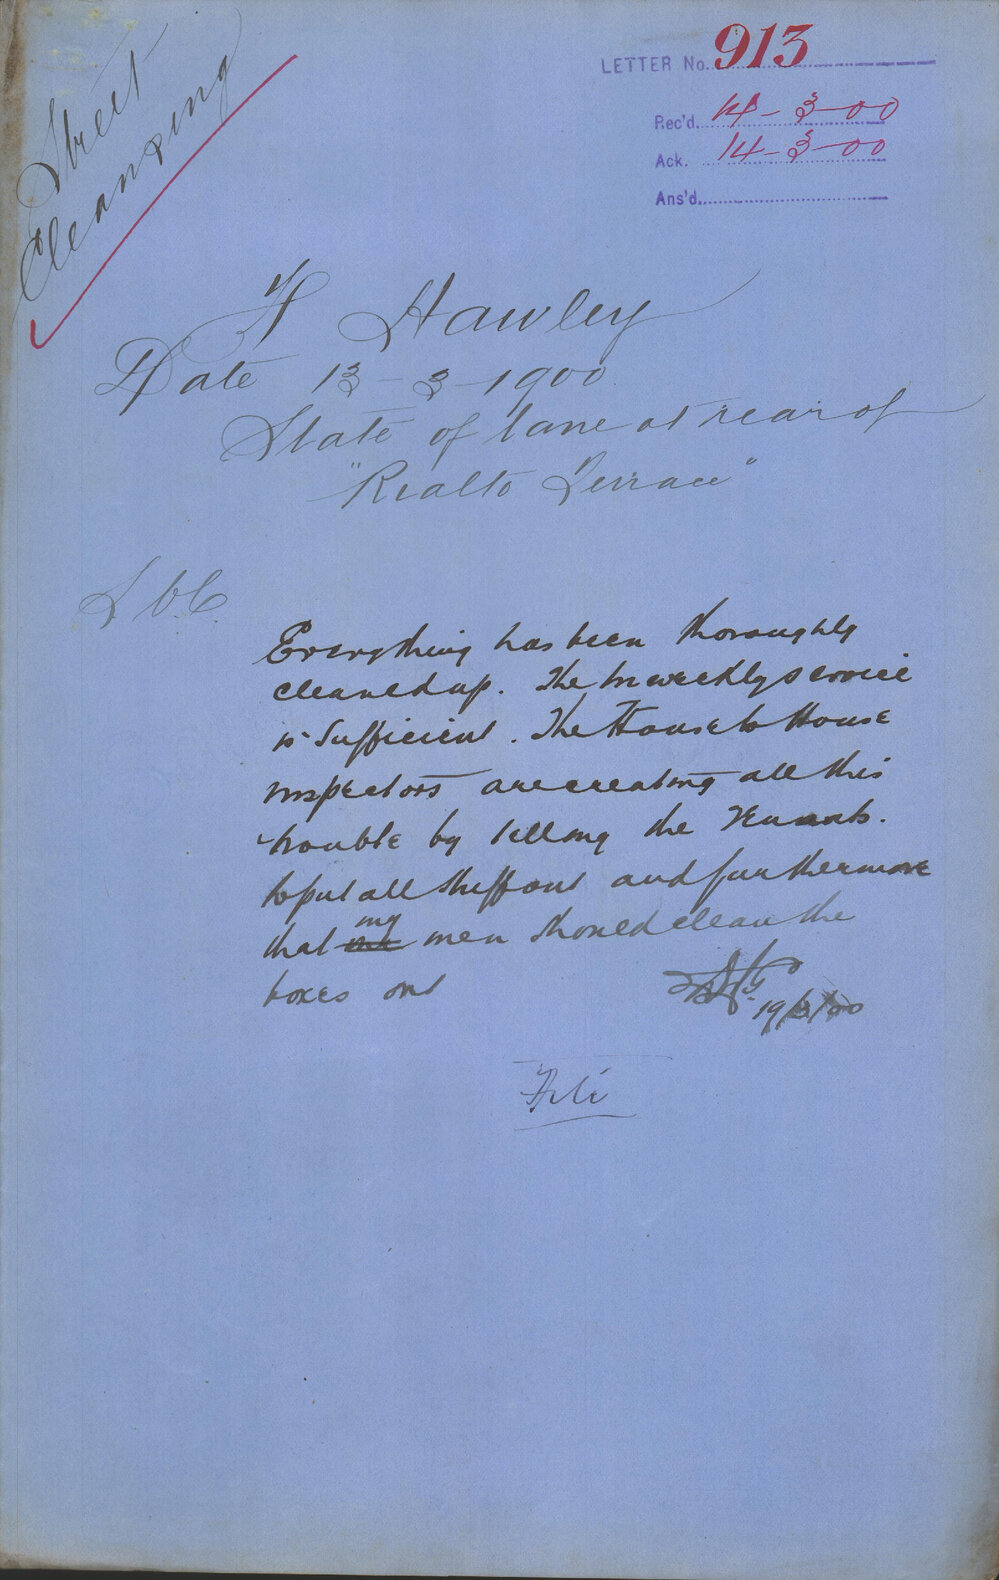 Street
Cleansing
LETTER No. 913
Rec'd. 14-3-00
Ack. 14-3-00
Ans'd.
F Hawley
Date 13-3-1900
State of lane at rear of
"Rialto Terrace"
Everything has been thoroughly
cleaned up. The triweekly service
is sufficient. The House to House
inspectors are creating all this
trouble by telling the Tenants.
to put all stuff out and furthermore
my
that men should clean the
boxes out
19/3/00
File